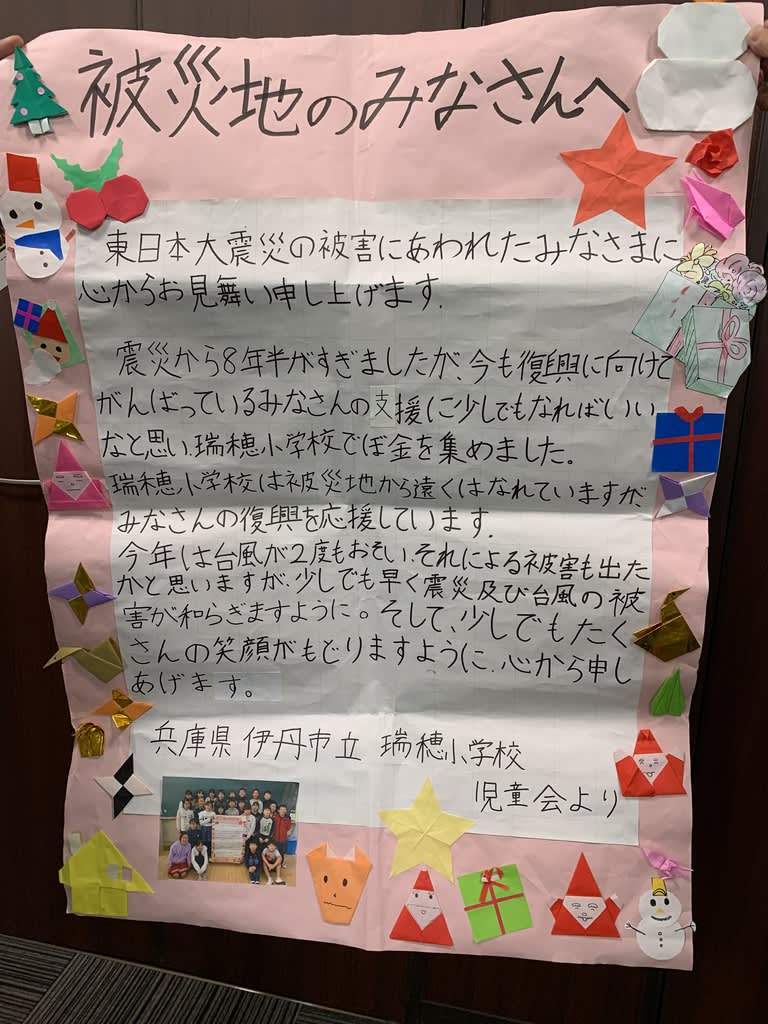 被災地のみなさんへ
東日本大震災の被害にあわれたみなさまに
心からお見舞い申し上げます.
震災から8年半がすぎましたが、今も復興に向けて
がんばっているみなさんの支援に少しでもなればいい
なと思い、瑞穂小学校でぼ金を集めました。
瑞穂小学校は被災地から遠くはなれていますが、
みなさんの復興を応援しています.
今年は台風が2度もおそい、それによる被害も出た
かと思いますが、少しでも早く震災及び台風の被
害が和らぎますように。そして、少しでもたく
さんの笑顔がもどりますように、心から申し
あげます。
兵庫県 伊丹市立 瑞穂小学校
児童会より